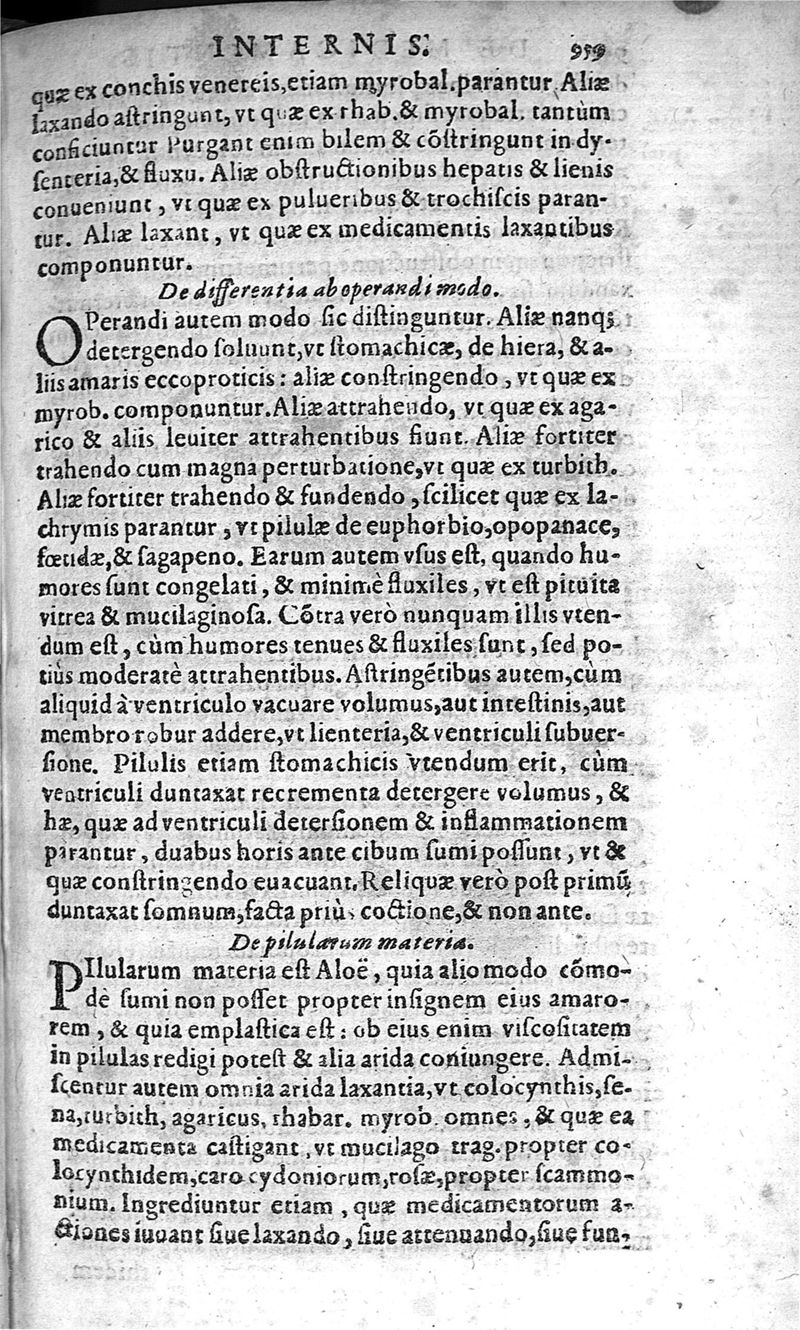 INTERNIS. 959
quæ ex conchis venereis, etiam myrobal. parantur. Aliæ
laxando aſtringunt, vt quæ ex rhab. & myrobal. tantùm
conficiuntur Purgant enim bilem & cõſtringunt in dy-
ſenteria, & fluxu. Aliæ obſtructionibus hepatis & lienis
conueniunt, vt quæ ex pulueribus & trochiſcis paran-
tur. Aliæ laxant, vt quæ ex medicamentis laxantibus
componuntur.
De differentia ab operandi modo.
OPerandi autem modo ſic diſtinguntur. Aliæ nanq;
detergendo ſoluunt, vt ſtomachicæ, de hiera, & a-
liis amaris eccoproticis: aliæ conſtringendo, vt quæ ex
myrob. componuntur. Aliæ attrahendo, vt quæ ex aga-
rico & aliis leuiter attrahentibus fiunt. Aliæ fortiter
trahendo cum magna perturbatione, vt quæ ex turbith.
Aliæ fortiter trahendo & fundendo, ſcilicet quæ ex la-
chrymis parantur, vt pilulæ de euphorbio, opopanace,
fœtidæ, & ſagapeno. Earum autem vſus eſt, quando hu-
mores ſunt congelati, & minimè fluxiles, vt eſt pituita
vitrea & mucilaginoſa. Cõtra verò nunquam illis vten-
dum eſt, cùm humores tenues & fluxiles ſunt, ſed po-
tiùs moderatè attrahentibus. Aſtringẽtibus autem, cùm
aliquid à ventriculo vacuare volumus, aut inteſtinis, aut
membro robur addere, vt lienteria, & ventriculi ſubuer-
ſione. Pilulis etiam ſtomachicis vtendum erit, cùm
ventriculi duntaxat recrementa detergere volumus, &
hæ, quæ ad ventriculi deterſionem & inflammationem
parantur, duabus horis ante cibum ſumi poſſunt, vt &
quæ conſtringendo euacuant. Reliquæ verò poſt primũ
duntaxat ſomnum, facta priùs coctione, & non ante.
De pilularum materia.
PIlularum materia eſt Aloë, quia alio modo cõmo-
dè ſumi non poſſet propter inſignem eius amaro-
rem, & quia emplaſtica eſt: ob eius enim viſcoſitatem
in pilulas redigi poteſt & alia arida coniungere. Admi-
ſcentur autem omnia arida laxantia, vt colocynthis, ſe-
na, turbith, agaricus, rhabar. myrob. omnes, & quæ ea
medicamenta caſtigant, vt mucilago trag. propter co-
locynthidem, caro cydoniorum, roſæ, propter ſcammo-
nium. Ingrediuntur etiam, quæ medicamentorum a-
ctiones iuuant ſiue laxando, ſiue attenuando, ſiue fun-